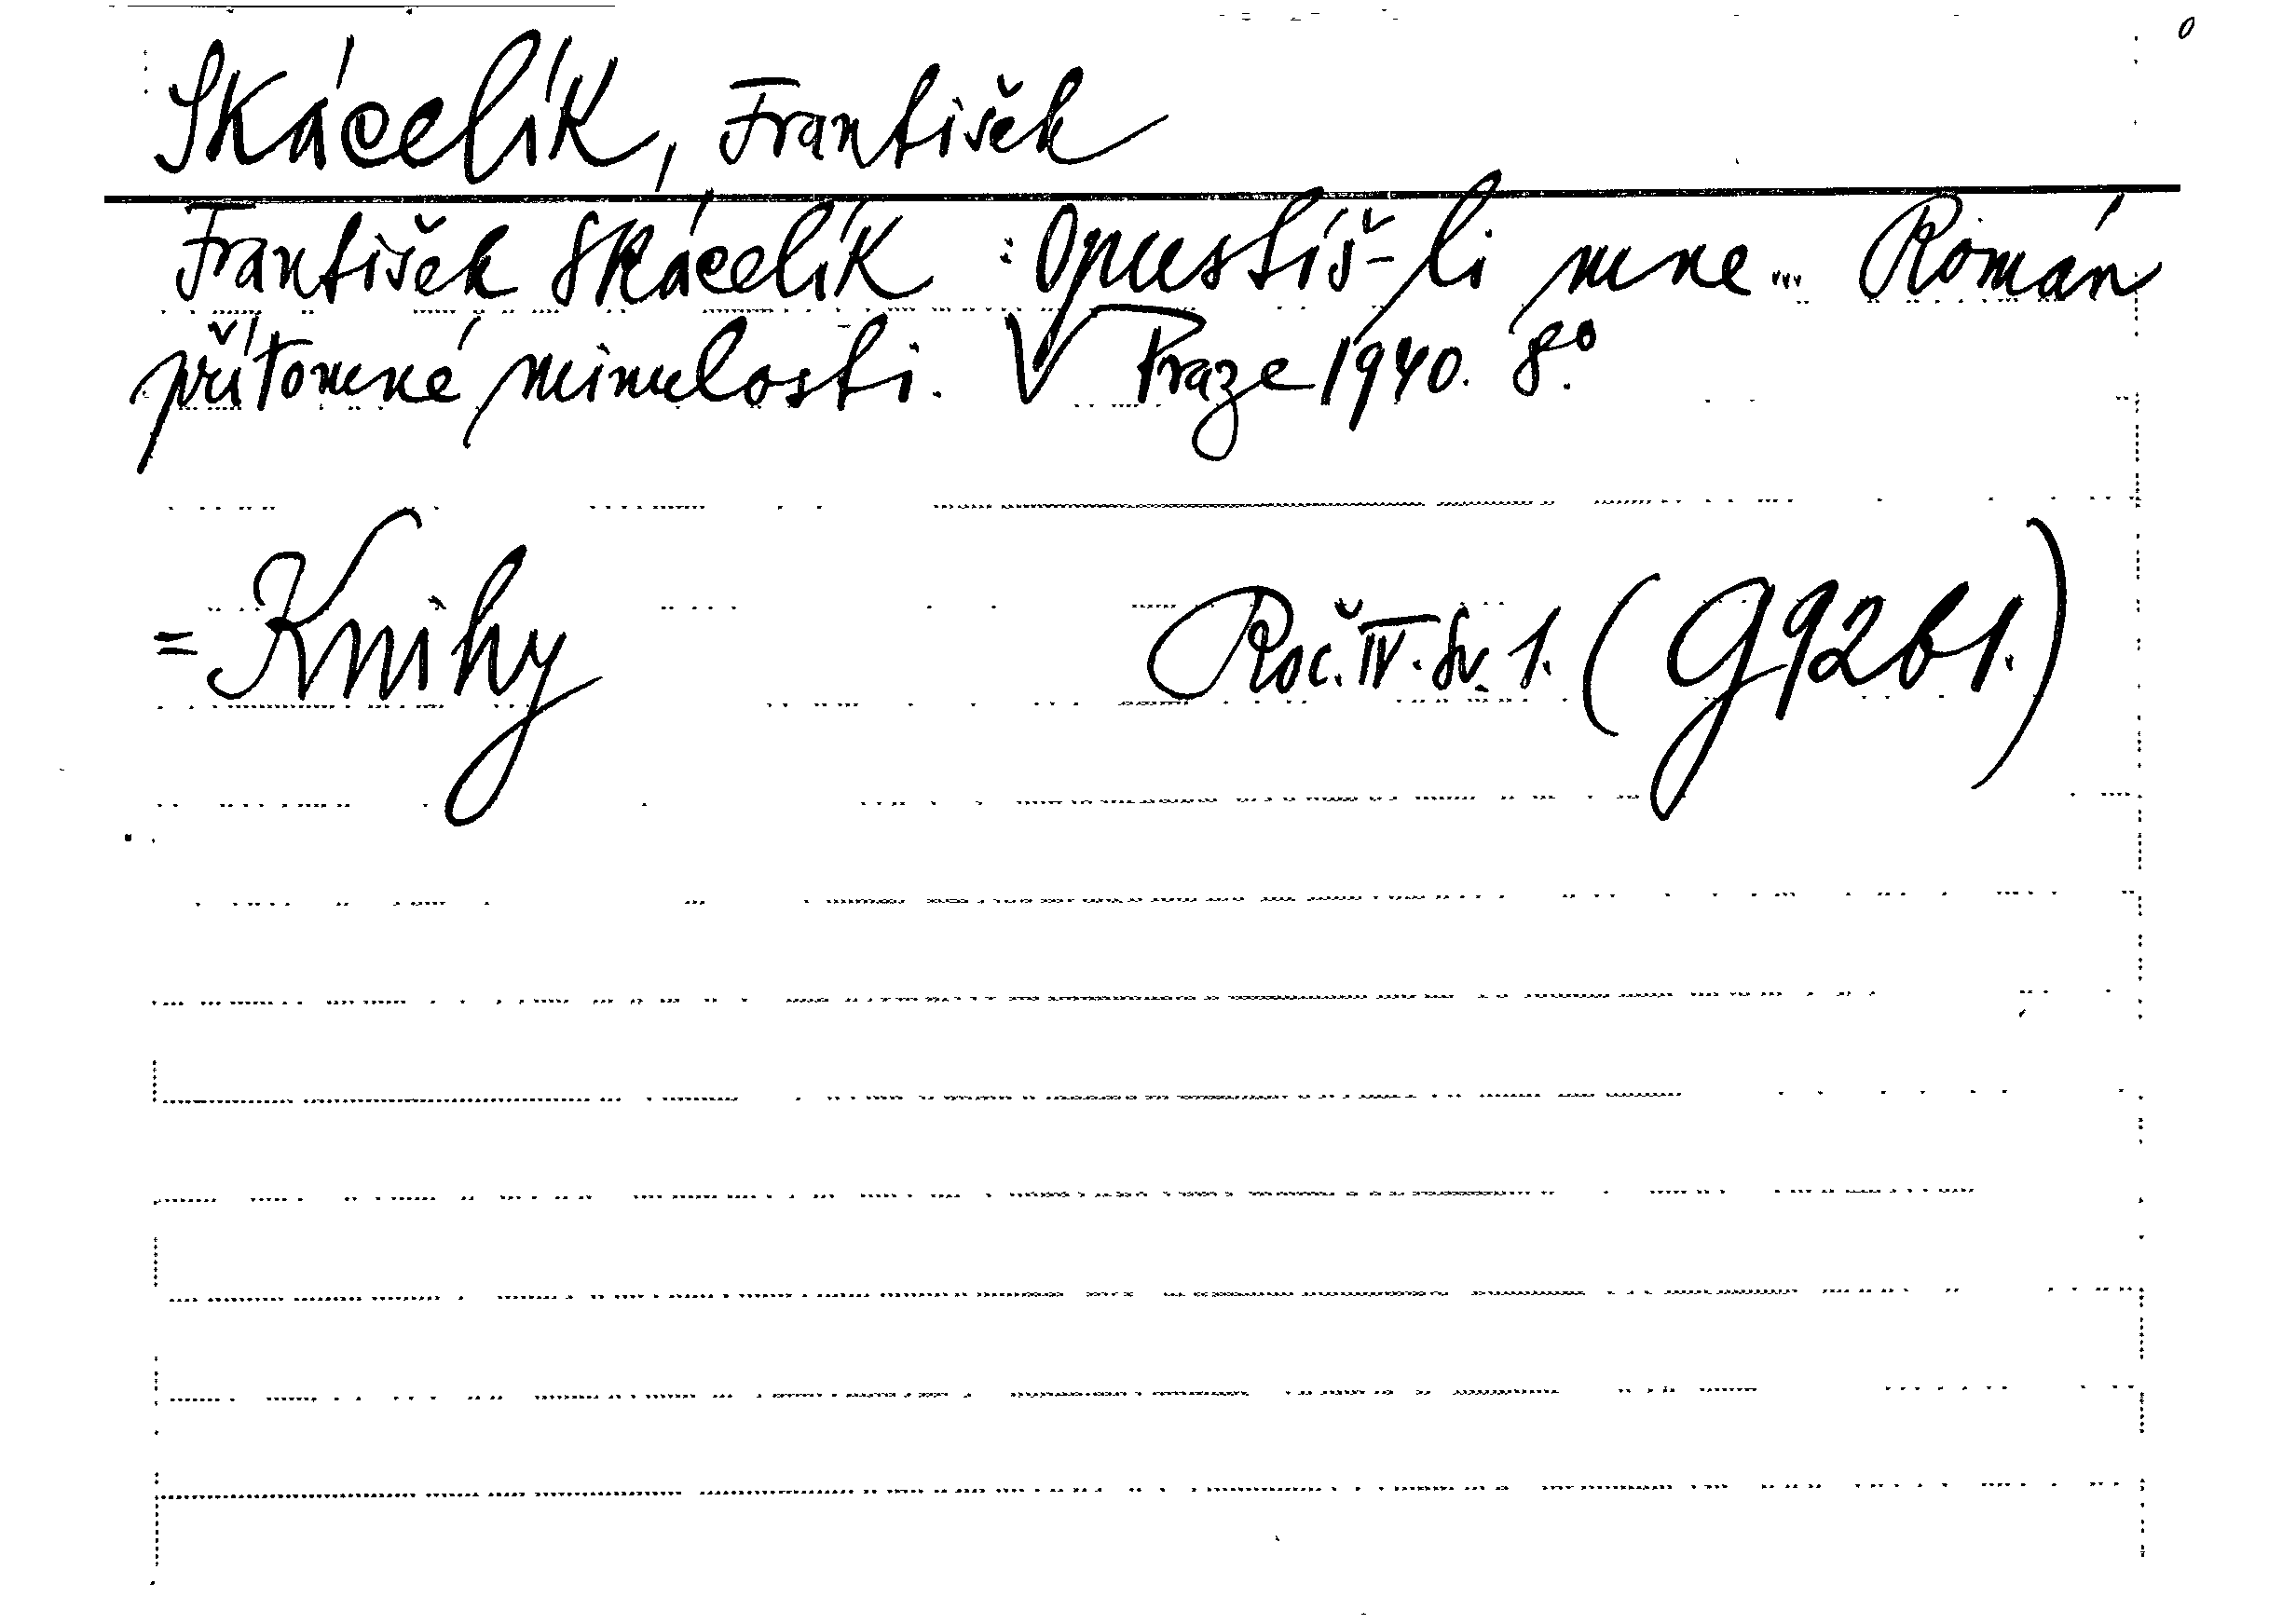 Skácelík, František
František Skácelík : Opustíš-li mne... Román
přítomné minulosti. V Praze 1940. 8.°
= Knihy Roč. IV. Sv. 1. (G 9261.)